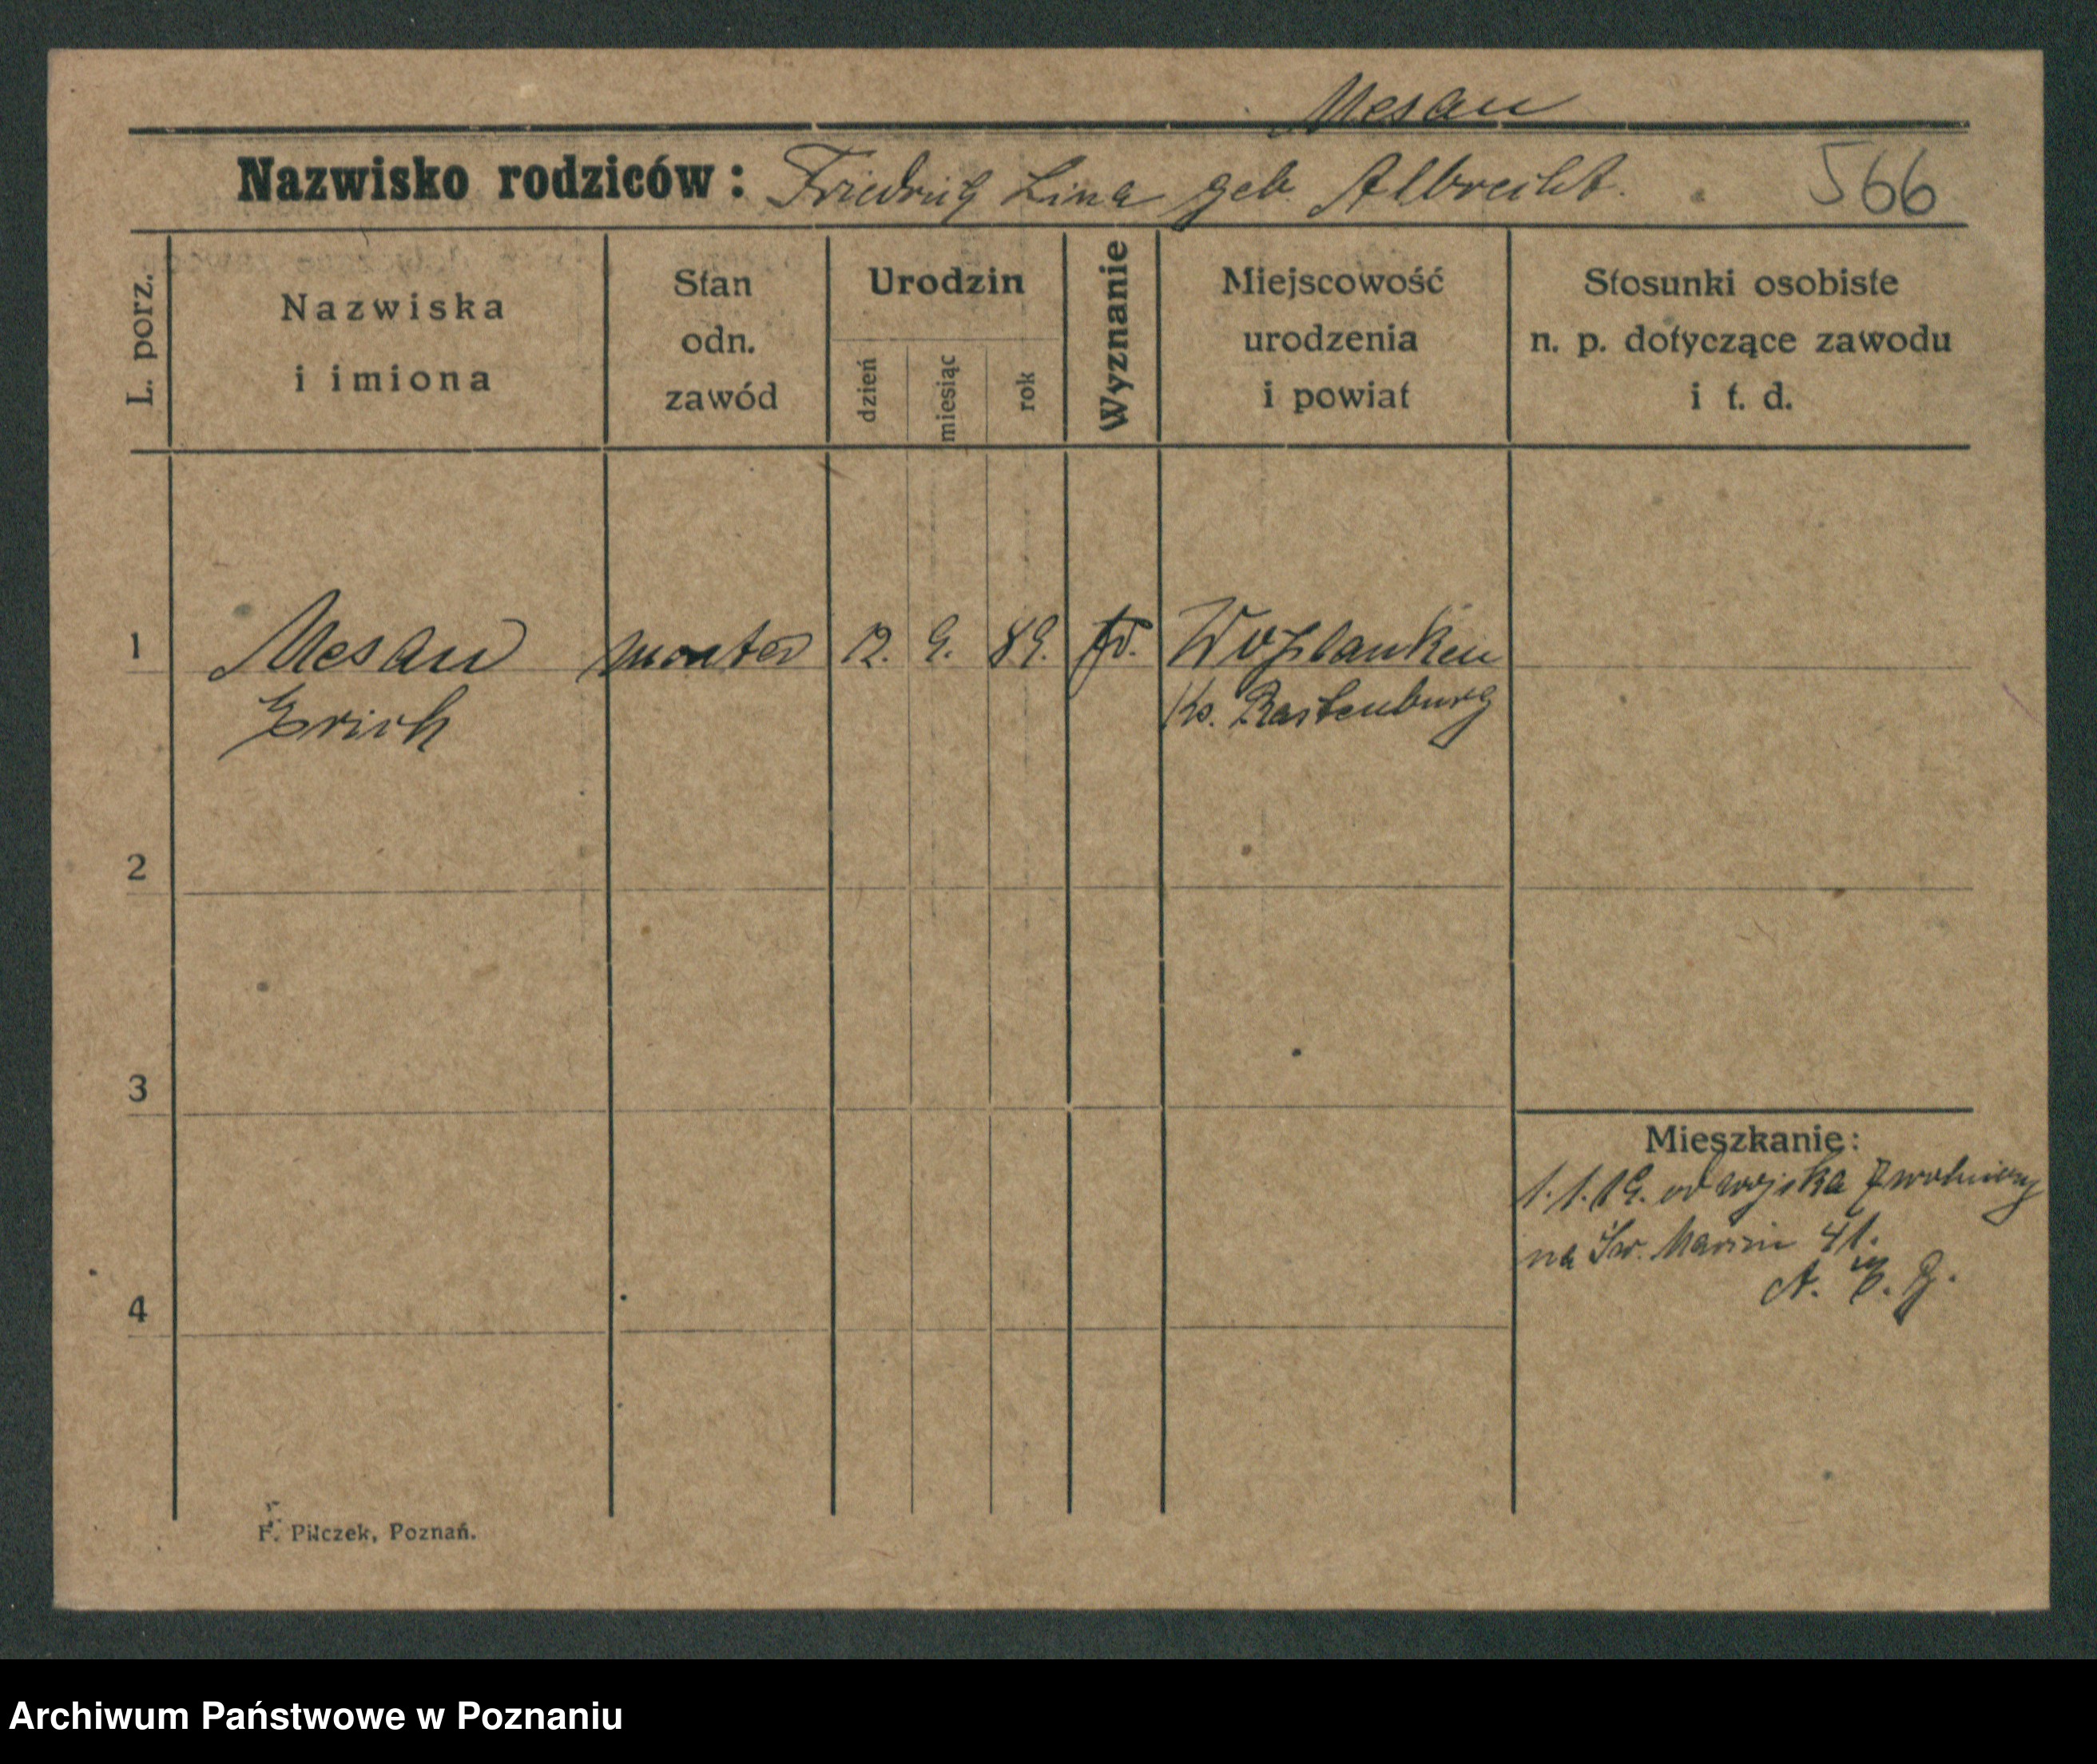 Mesau
Nazwisko rodziców: Friedrich Lina geb. Albrecht. 566
L. porz.
Nazwiska
i imiona
Stan
odn.
zawód
Urodzin
dzień
miesiąc
rok
Wyznanie
Miejscowość
urodzenia
i powiat
Stosunki osobiste
n. p. dotyczące zawodu
i t. d.
1
Mesau monter 12. 9. 89.
Erich
Ks. Rastenburg
2
3
4
Mieszkanie:
1.1.19. od wojska zwolniony
na Św. Marcin 41.
F. Pilczek, Poznań.
Archiwum Państwowe w Poznaniu